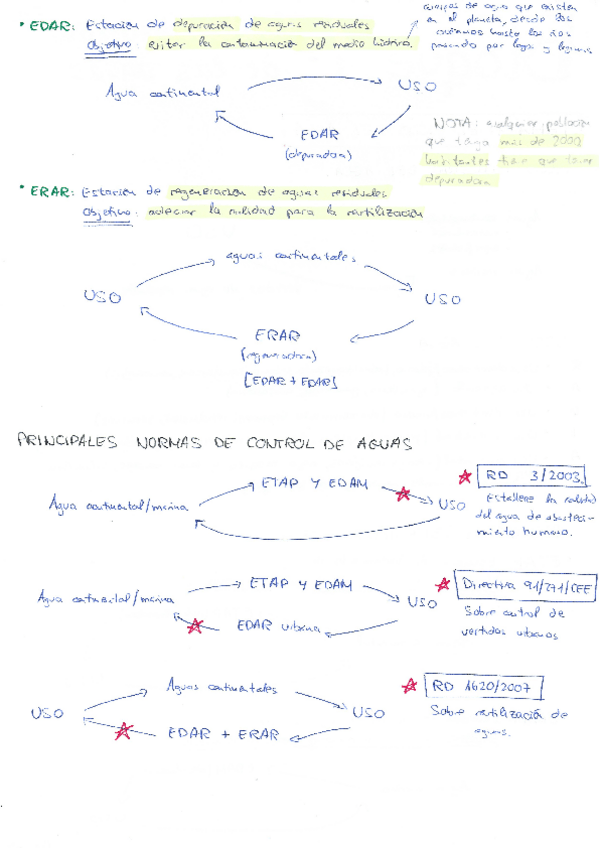 cuerpos de agua que existen
en el planeta, desde los
océanos hasta los ríos
pasando por lagos y lagunas
• EDAR: Estación de depuración de aguas residuales
Objetivo: evitar la contaminación del medio hídrico.
Agua continental
USO
EDAR
(depuradora)
NOTA: cualquier población
que tenga más de 2000
habitantes tiene que tener
depuradora
• ERAR: Estación de regeneración de aguas residuales
Objetivo: adecuar la calidad para la reutilización
aguas continentales
USO
USO
ERAR
(regeneradora)
[EDAR + EDAR]
PRINCIPALES NORMAS DE CONTROL DE AGUAS
ETAP Y EDAM
RD 3/2003.
Agua continental/marina
USO
Establece la calidad
del agua de abasteci-
miento humano.
ETAP Y EDAM
Directiva 91/271/CEE
Agua continental/marina
USO
EDAR urbana
Sobre control de
vertidos urbanos
Aguas continentales
RD 1620/2007
USO
USO
Sobre reutilización de
aguas.
EDAR + ERAR